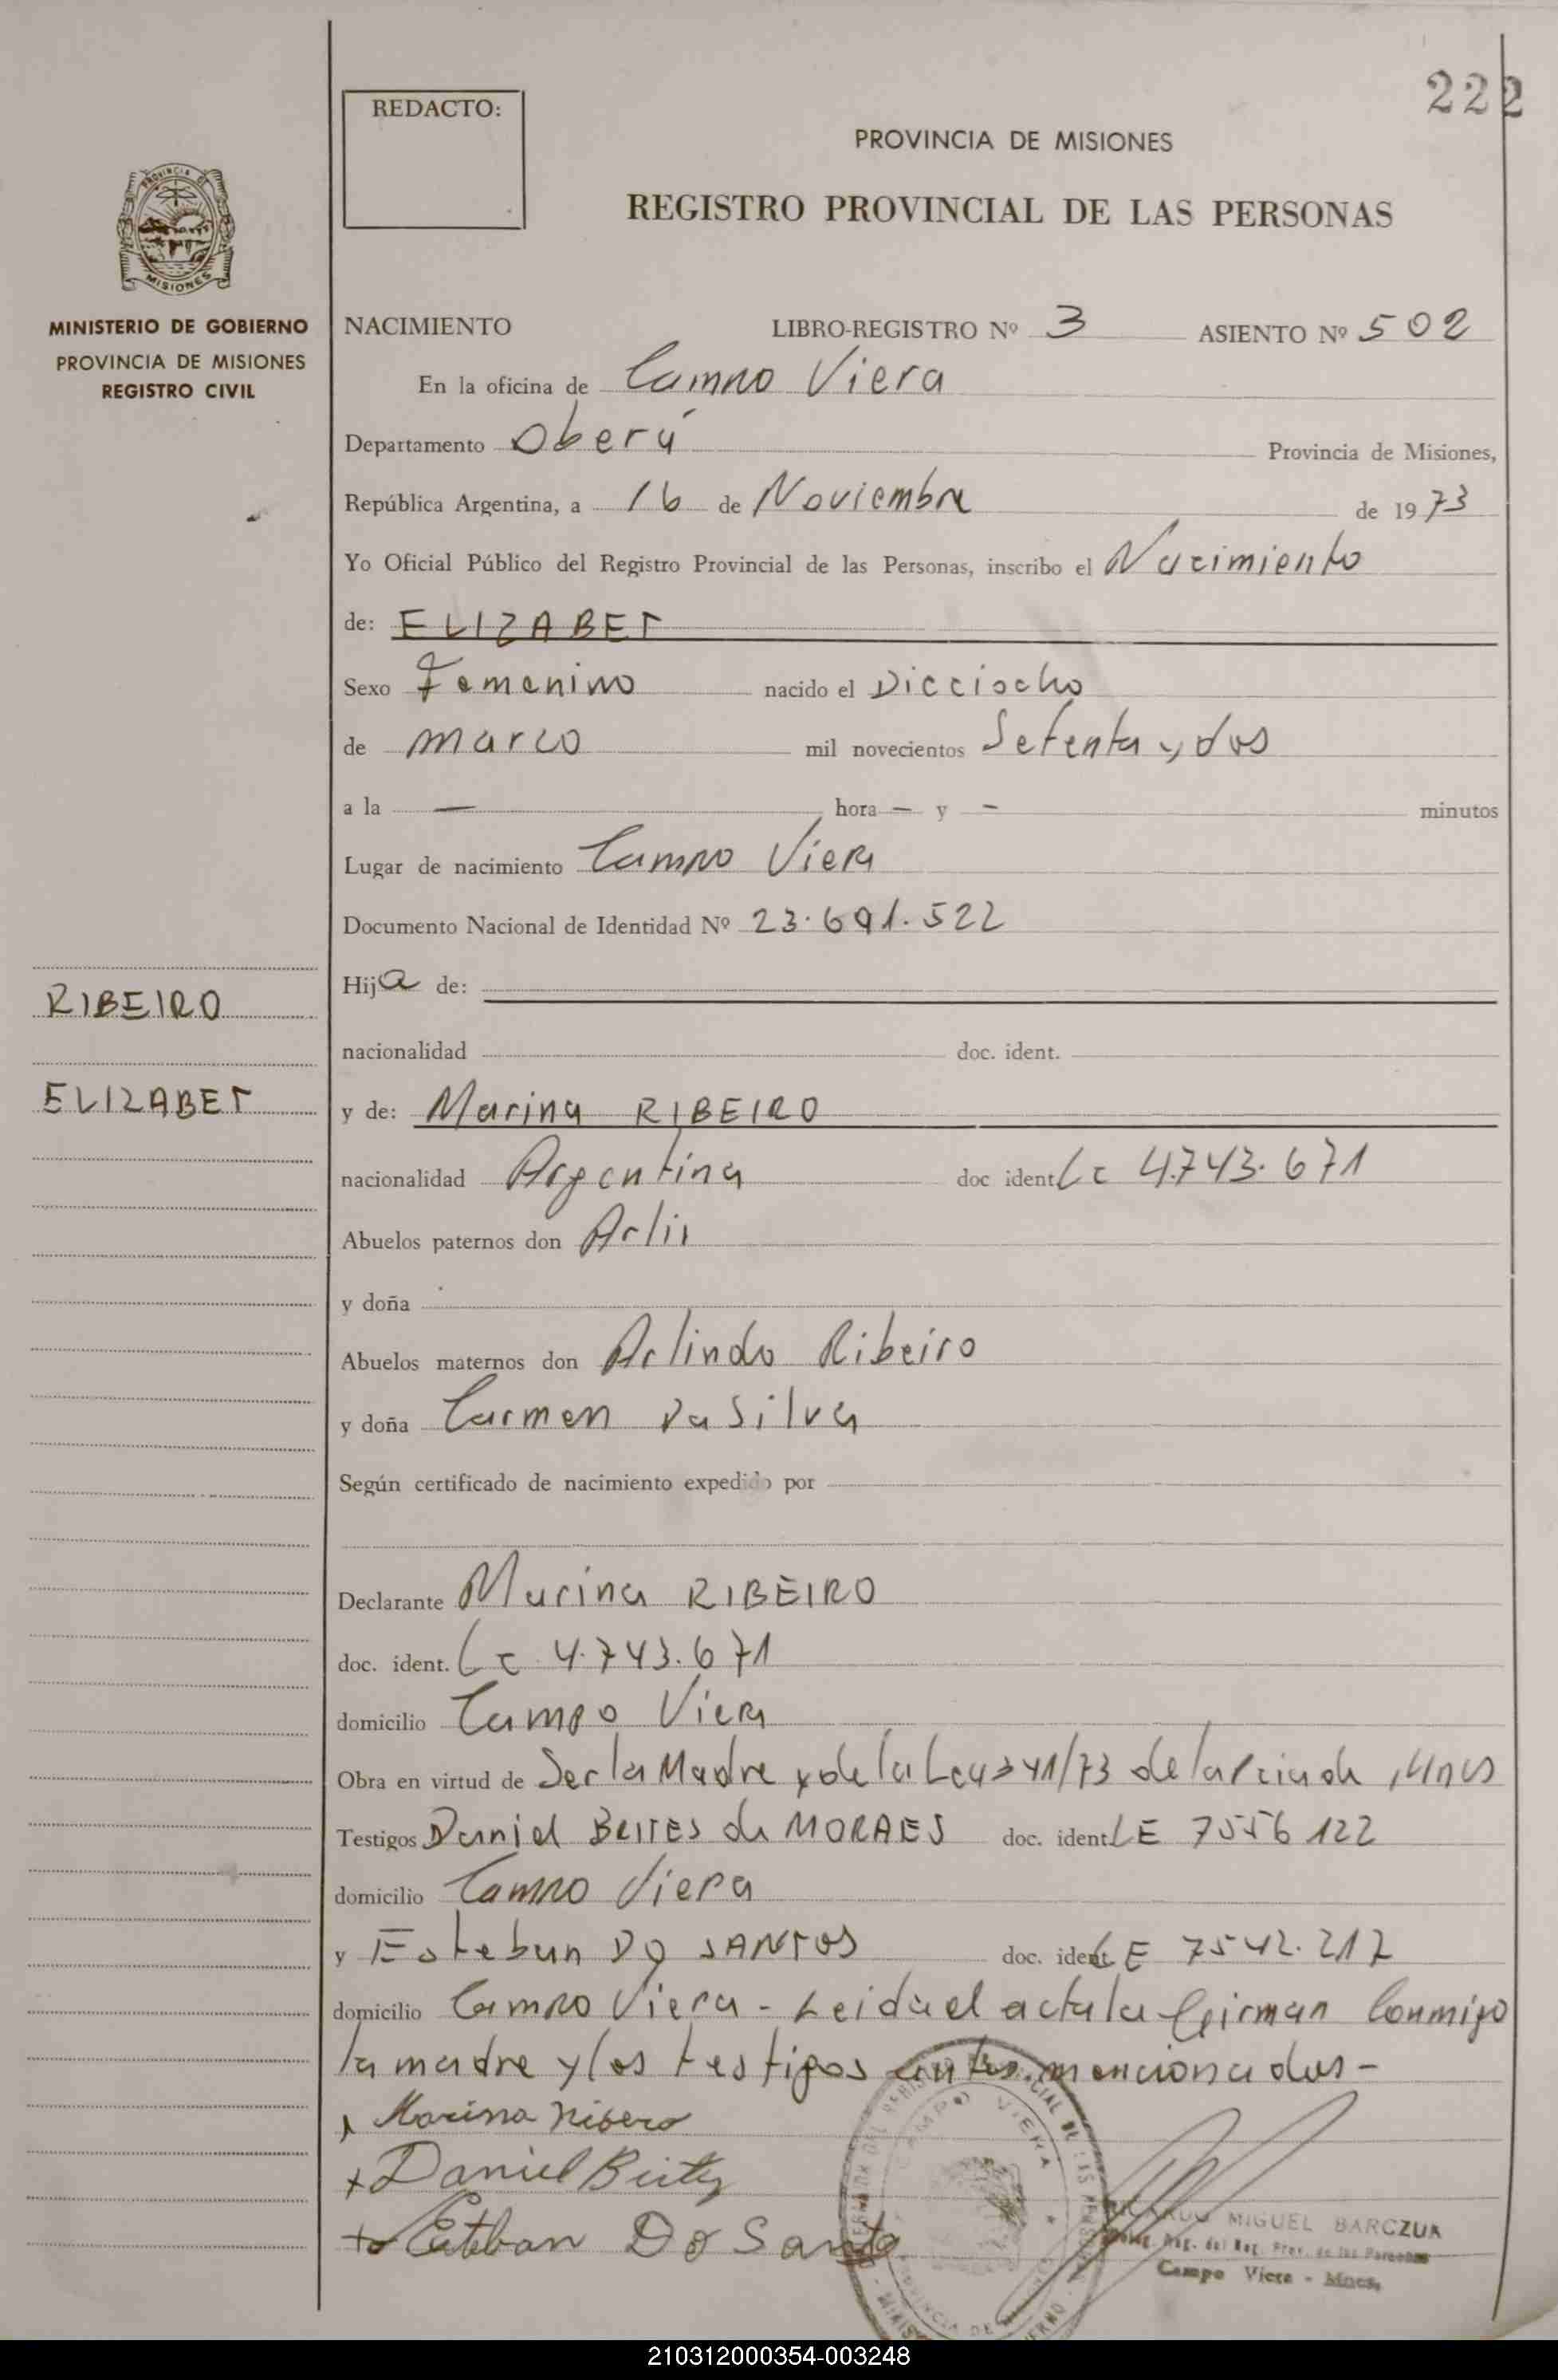 222
REDACTO:
PROVINCIA DE MISIONES
REGISTRO PROVINCIAL DE LAS PERSONAS
MISIONES
MINISTERIO DE GOBIERNO
PROVINCIA DE MISIONES
REGISTRO CIVIL
NACIMIENTO LIBRO-REGISTRO Nº 3 ASIENTO Nº 502
En la oficina de Campo Viera
Departamento Oberá Provincia de Misiones,
República Argentina, a 16 de Noviembre de 1973
Yo Oficial Público del Registro Provincial de las Personas, inscribo el Nacimiento
de: ELIZABET
Sexo Femenino nacido el Dieciocho
de marzo mil novecientos Setenta y dos
a la — hora — y — minutos
Lugar de nacimiento Campo Viera
Documento Nacional de Identidad Nº 23.691.522
Hija de:
nacionalidad doc. ident.
RIBEIRO
ELIZABET
y de: Marina RIBEIRO
nacionalidad Argentina doc ident. LC 4.743.671
Abuelos paternos don Arli
y doña
Abuelos maternos don Arlindo Ribeiro
y doña Carmen Da Silva
Según certificado de nacimiento expedido por
Declarante Marina RIBEIRO
doc. ident. LC 4.743.671
domicilio Campo Viera
Obra en virtud de Ser la Madre y de la Ley 341/73 de la Pcia de Mnes
Testigos Daniel BEITES de MORAES doc. ident. LE 7556122
domicilio Campo Viera
y Esteban DO SANTOS doc. ident. LE 7542.217
domicilio Campo Viera - Leida el acta la firman Conmigo
la madre y los testigos antes mencionados -
Marina Ribero
+ Daniel Beites
+ Esteban Do Santo
MIGUEL BARCZUK
del Reg. Prov. de las Personas
Campo Viera - Mnes.
210312000354-003248